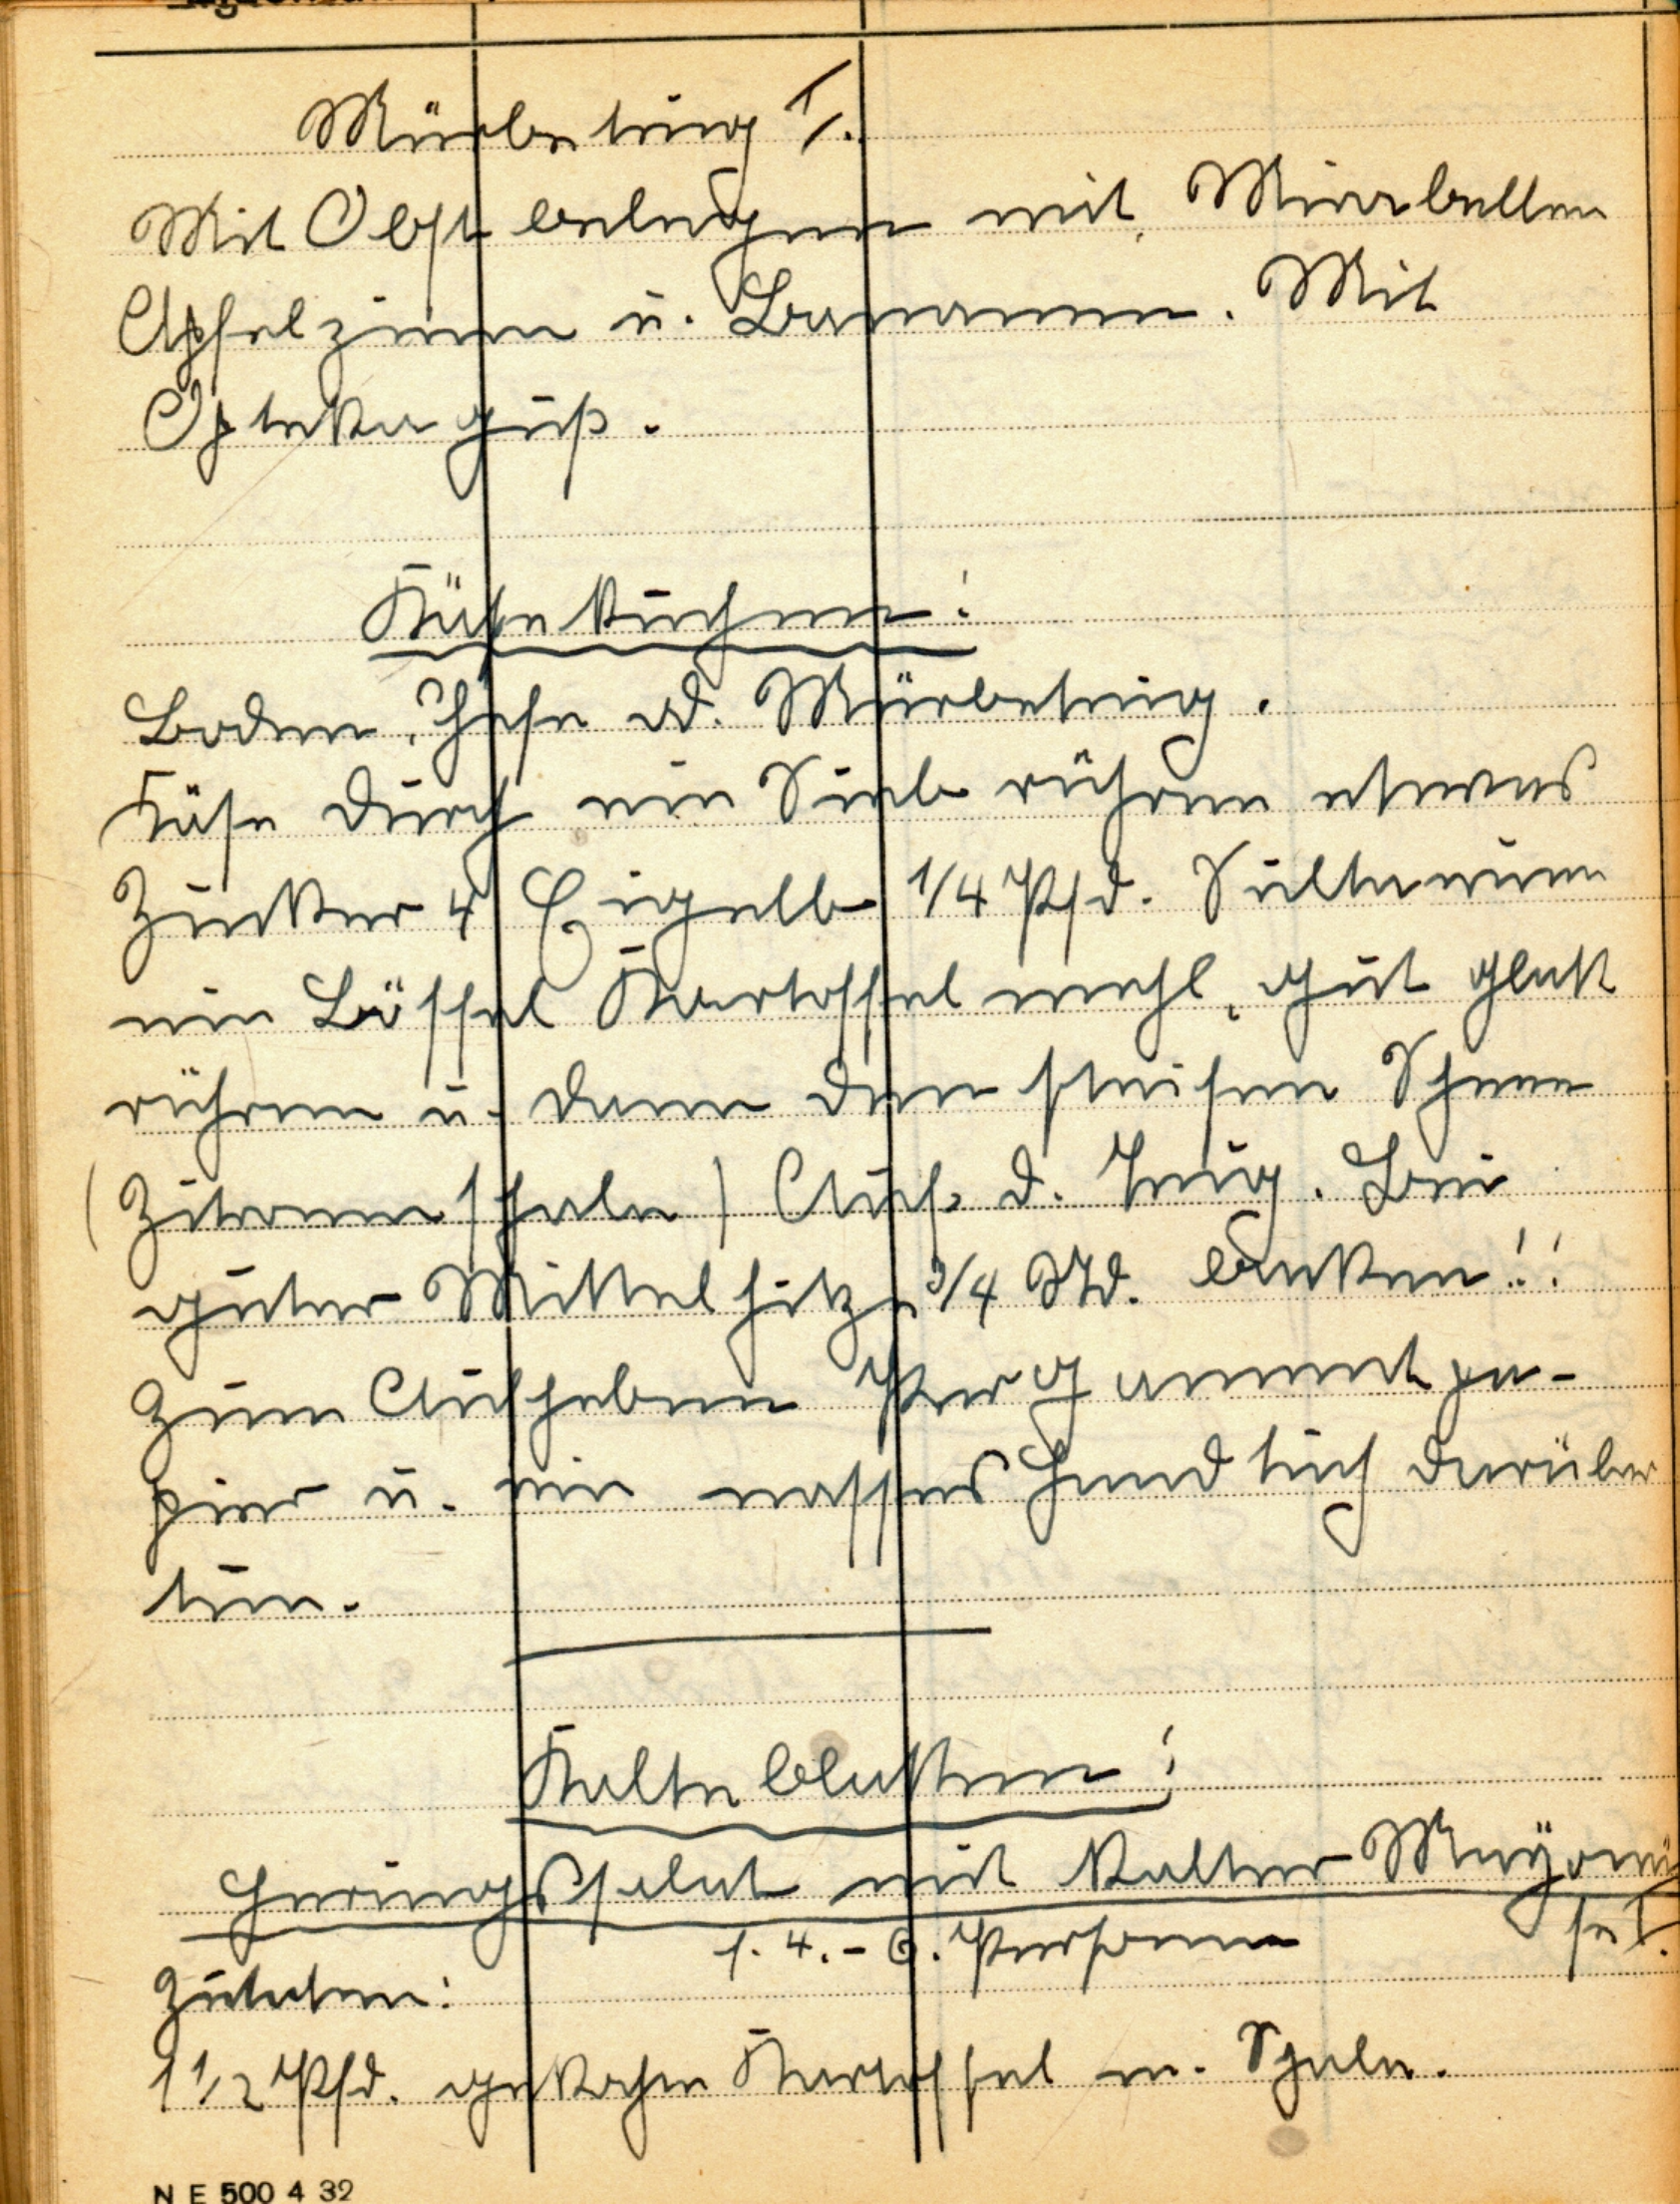 Mürbeteig I.
Mit Obst belegen mit Mirabellen
Apfelzinen u. Bananen. Mit
Optekaguß.
Käsekuchen:
Boden, Hefe od. Mürbeteig.
Käse durch ein Sieb rühren etwas
Zucker 4 Eigelb 1/4 Pfd. Sultaninen
ein Löffel Kartoffelmehl, gut glatt
rühren u. dann den steifen Schnee
(Zitronenschale) Auf d. Teig. Bei
guter Mittelhitze 3/4 Std. backen!!
Zum Aufheben Pergamentpa-
pier u. ein nasses Handtuch darüber
tun.
Kalteblatten:
Heringssalat mit kalter Mayonai
se I.
f. 4.-6. Personen
Zutaten:
1 1/2 Pfd. gekochte Kartoffel m. Schale.
N E 500 4 32